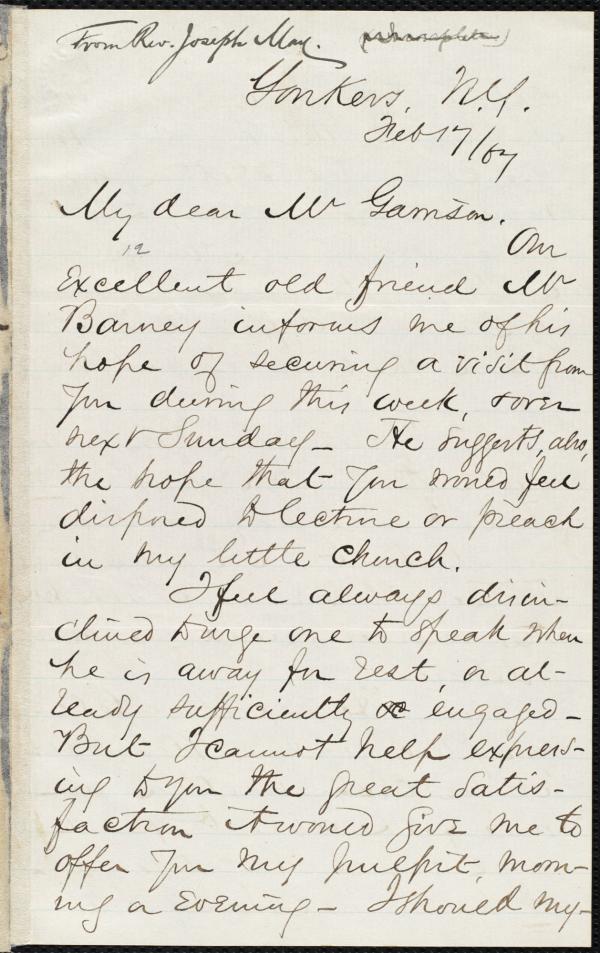 From Rev. Joseph May.
Yonkers, N.Y.
Feb 17/67
My dear Mr Garrison.
Our
12
excellent old friend Mr
Barney informs me of his
hope of securing a visit from
you during this week, & over
next Sunday_ He suggests, also,
the hope that you would feel
disposed to lecture or preach
in my little church.
I feel always disin-
clined to urge one to speak when
he is away for rest, or al-
ready sufficiently engaged_
But I cannot help express-
ing to you the great satis-
faction it would give me to
offer you my pulpit, morn-
ing or evening_ I should my-